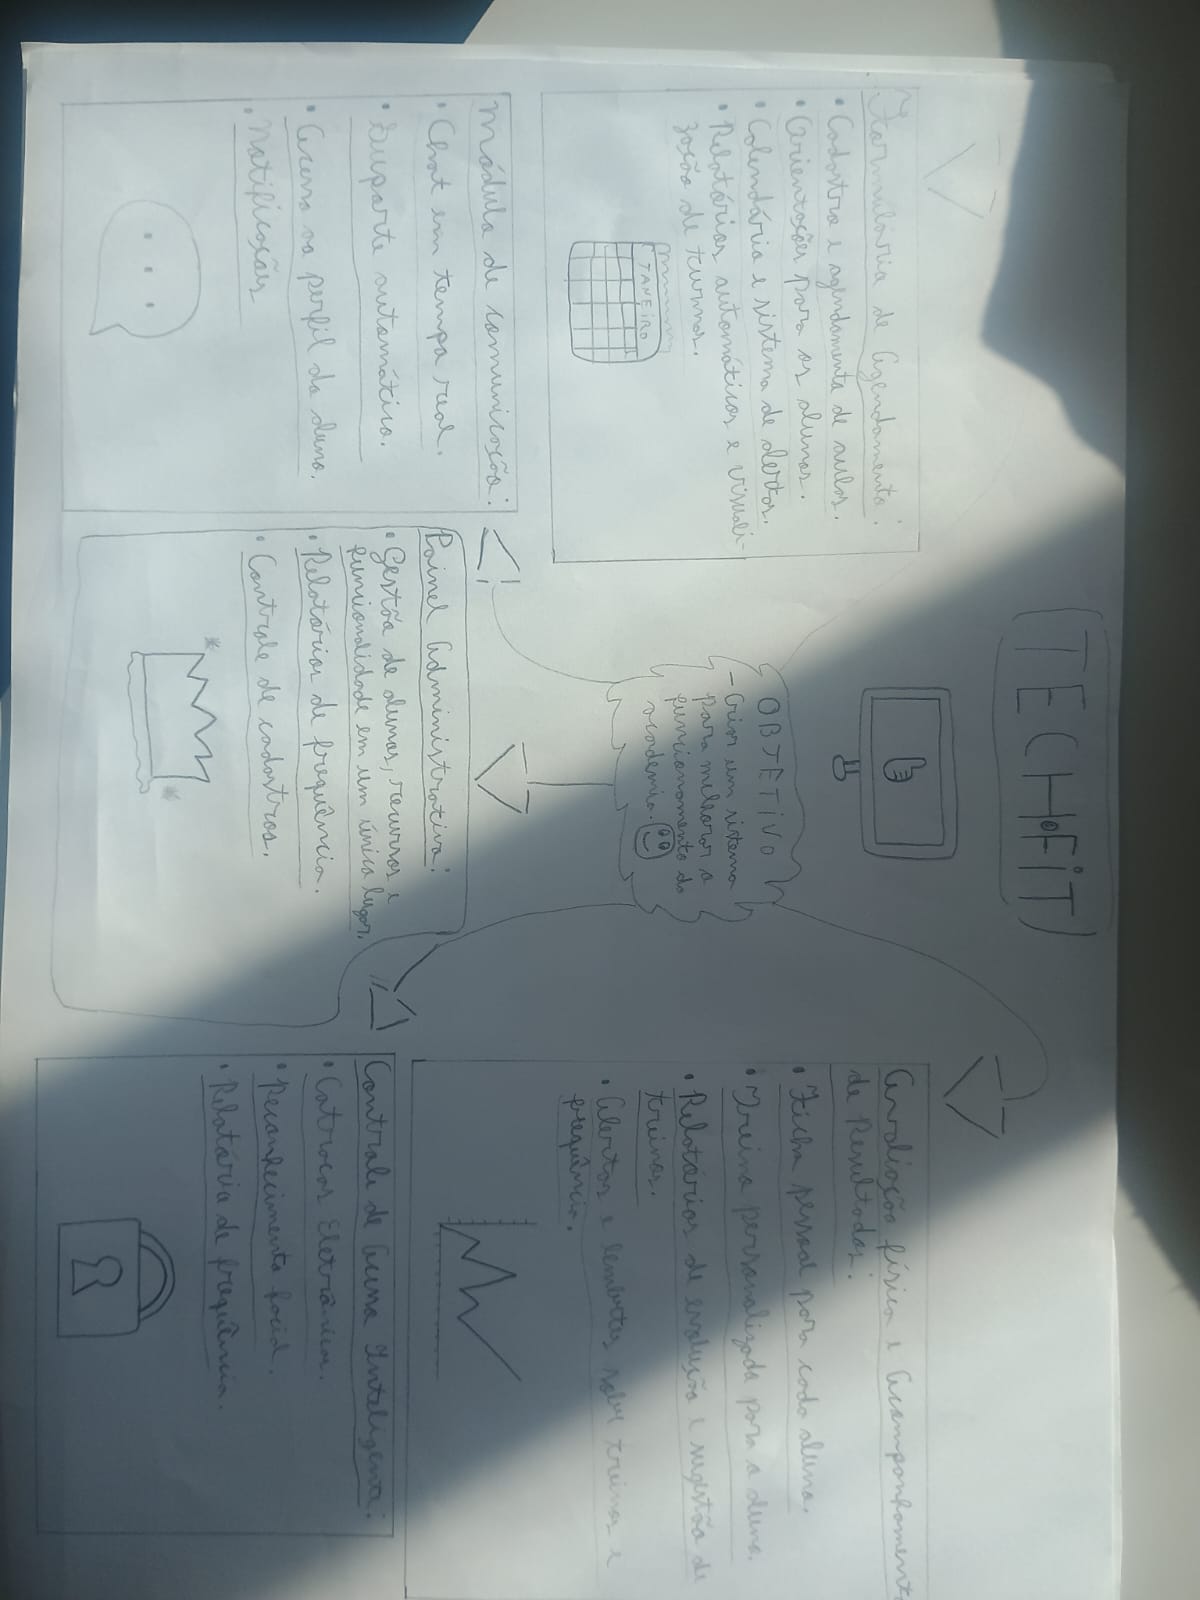 TECHFIT
OBJETIVO
- Criar um sistema
para melhorar o
funcionamento da
academia.
Formulário de Agendamento:
• Cadastro e agendamento de aulas.
• Orientações para os alunos.
• Calendário e sistema de alertas.
• Relatórios automáticos e visuali-
zação de turmas.
JANEIRO
Módulo de comunicação:
• Chat em tempo real.
• Suporte automático.
• Acesso ao perfil do aluno.
• Notificações
Painel Administrativo:
• Gestão de alunos, recursos e
funcionalidade em um único lugar.
• Relatórios de frequência.
• Controle de cadastros.
Avaliação física e Acompanhamento
de Resultados.
• Ficha pessoal para cada aluno.
• Treino personalizado para o aluno.
• Relatórios de evolução e sugestão de
treinos.
• Alertas e lembretes sobre treinos e
frequência.
Controle de Acesso Inteligente:
• Catracas Eletrônicas.
• Reconhecimento facial.
• Relatório de frequência.